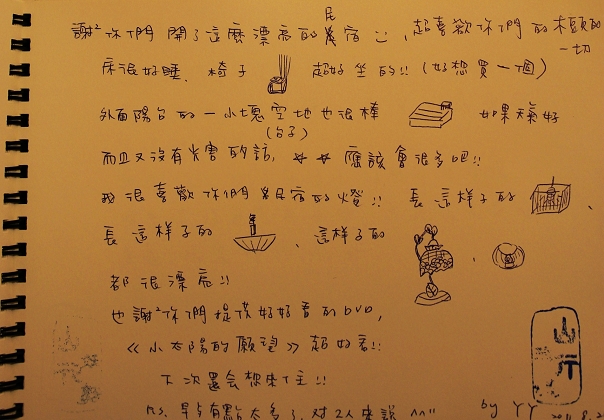 謝²你們開了這麼漂亮的民宿 ，超喜歡你們的木頭的一切
床很好睡. 椅子 超好坐的!! (好想買一個)
外面陽台的一小塊空地也很棒 如果天氣好
(句子)
而且又沒有光害的話, 應該會很多吧!!
我很喜歡你們民宿的燈!! 長這樣子的 、
長這樣子的 、這樣子的 、
都很漂亮!!
也謝²你們提供好好看的DVD,
《小太陽的願望》超好看!!
下次還會想來住!!
P.S. 早台有點太多了, 對2人來說 ^^"
by YY
山行